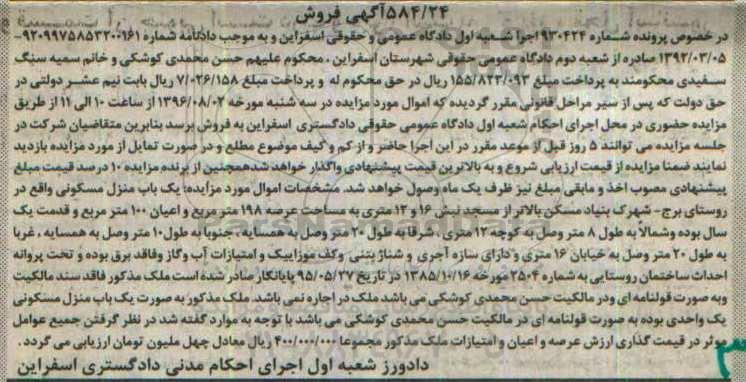 ۵۸۴/۲۴آگهی فروش
در خصوص پرونده شماره ۹۳۰۴۲۴ اجرا شعبه اول دادگاه عمومی و حقوقی اسفراین و به موجب دادنامه شماره ۹۲۰۹۹۷۵۸۵۳۲۰۰۱۶۱-
۱۳۹۲/۰۳/۰۵ صادره از شعبه دوم دادگاه عمومی حقوقی شهرستان اسفراین ، محکوم علیهم حسن محمدی کوشکی و خانم سمیه سنگ
سفیدی محکومند به پرداخت مبلغ ۱۵۵/۸۲۳/۰۹۳ ریال در حق محکوم له و پرداخت مبلغ ۷/۰۲۶/۱۵۸ ریال بابت نیم عشر دولتی در
حق دولت که پس از سیر مراحل قانونی مقرر گردیده که اموال مورد مزایده در سه شنبه مورخه ۱۳۹۶/۰۸/۰۲ از ساعت ۱۰ الی ۱۱ از طریق
مزایده حضوری در محل اجرای احکام شعبه اول دادگاه عمومی حقوقی دادگستری اسفراین به فروش برسد بنابرین متقاضیان شرکت در
جلسه مزایده می توانند ۵ روز قبل از موعد مقرر در این اجرا حاضر و از کم و کیف موضوع مطلع و در صورت تمایل از مورد مزایده بازدید
نمایند ضمنا مزایده از قیمت ارزیابی شروع و به بالاترین قیمت پیشنهادی واگذار خواهد شدهمچنین از برنده مزایده ۱۰ درصد قیمت مبلغ
پیشنهادی مصوب اخذ و مابقی مبلغ نیز ظرف یک ماه وصول خواهد شد. مشخصات اموال مورد مزایده: یک باب منزل مسکونی واقع در
روستای برج- شهرک بنیاد مسکن بالاتر از مسجد نبش ۱۶ و ۱۲ متری به مساحت عرصه ۱۹۸ متر مربع و اعیان ۱۰۰ متر مربع و قدمت یک
سال بوده وشمالاً به طول ۸ متر وصل به کوچه ۱۲ متری ، شرقا به طول ۲۰ متر وصل به همسایه ، جنوبا به طول ۱۰ متر وصل به همسایه ، غربا
به طول ۲۰ متر وصل به خیابان ۱۶ متری و دارای سازه آجری و شناژ بتنی وکف موزاییک و امتیازات آب وگاز وفاقد برق بوده و تحت پروانه
احداث ساختمان روستایی به شماره ۲۵۰۴ مورخه ۱۳۸۵/۱۰/۱۶ در تاریخ ۹۵/۰۵/۲۷ پایانکار صادر شده است ملک مذکور فاقد سند مالکیت
وبه صورت قولنامه ای ودر مالکیت حسن محمدی کوشکی می باشد ملک در اجاره نمی باشد. ملک مذکور به صورت یک باب منزل مسکونی
یک واحدی بوده به صورت قولنامه ای در مالکیت حسن محمدی کوشکی می باشد با توجه به موارد گفته شد در نظر گرفتن جمیع عوامل
موثر در قیمت گذاری ارزش عرصه و اعیان و امتیازات ملک مذکور مجموعا ۴۰۰/۰۰۰/۰۰۰ ریال معادل چهل ملیون تومان ارزیابی می گردد.
دادورز شعبه اول اجرای احکام مدنی دادگستری اسفراین